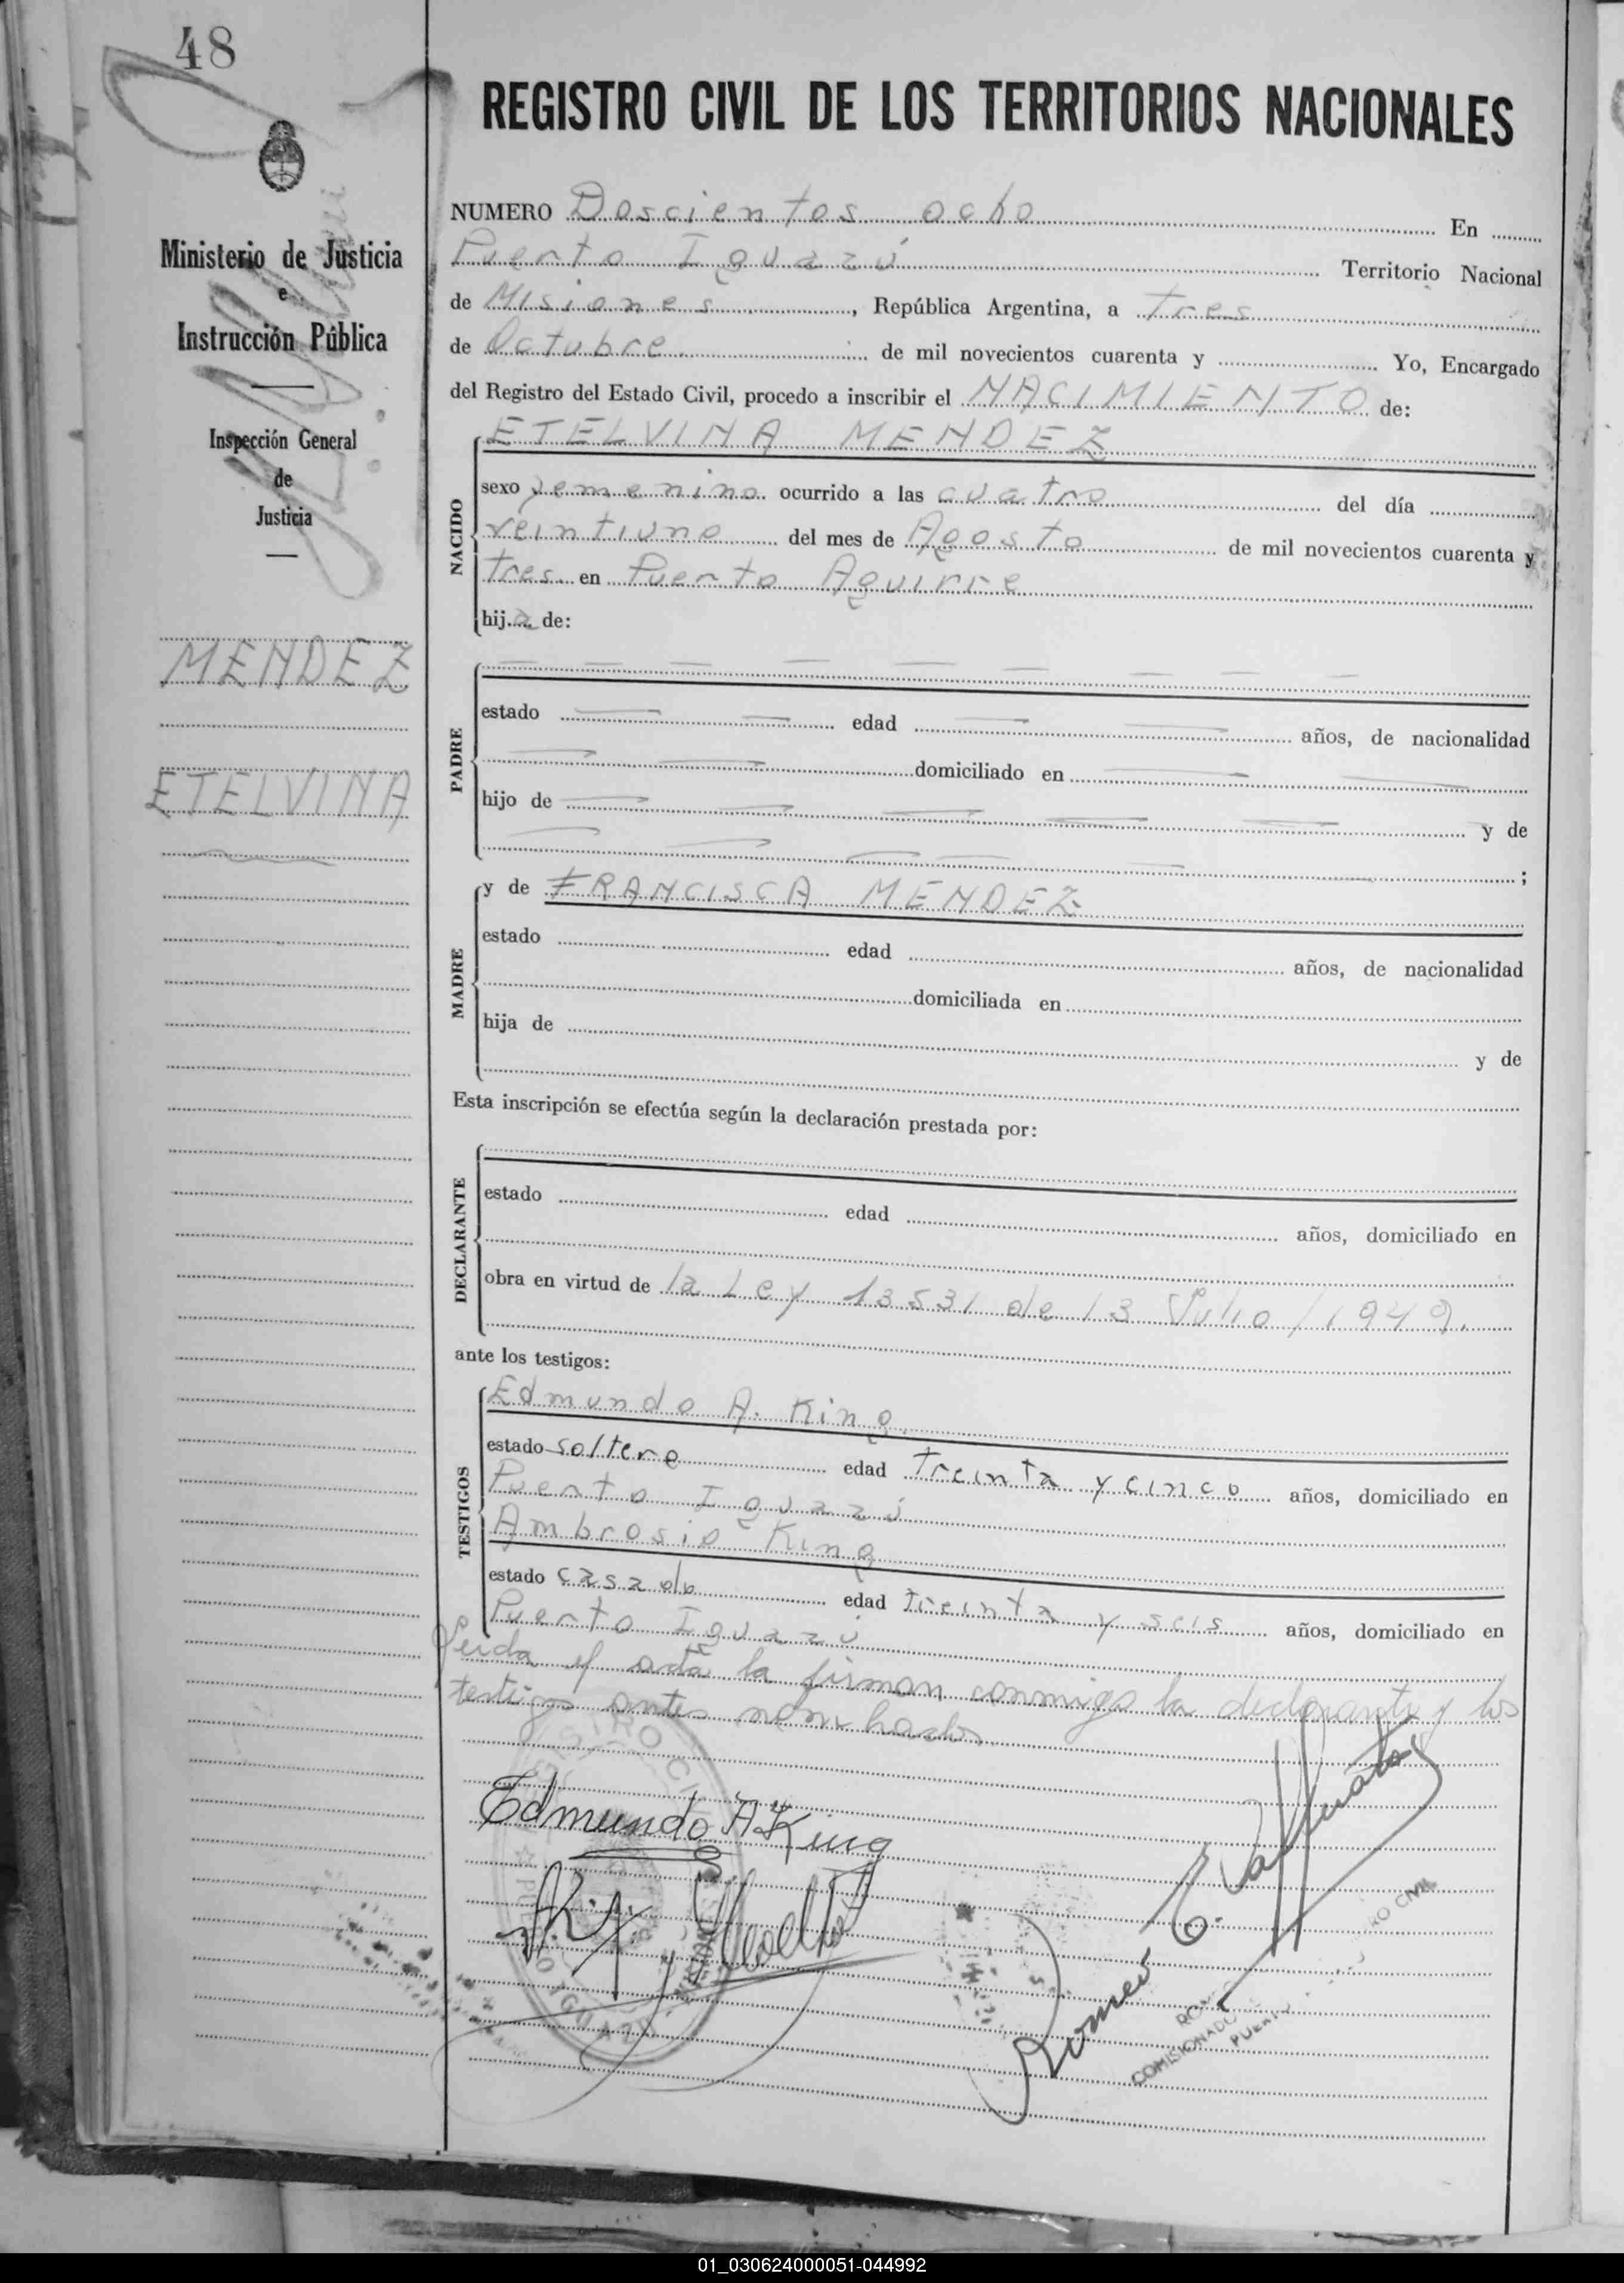 48
REGISTRO CIVIL DE LOS TERRITORIOS NACIONALES
Ministerio de Justicia
e
Instrucción Pública
Inspección General
de
Justicia
MENDEZ
ETELVINA
NUMERO Doscientos ocho En
Puerto Iguazú Territorio Nacional
de Misiones, República Argentina, a tres
de Octubre de mil novecientos cuarenta y Yo, Encargado
del Registro del Estado Civil, procedo a inscribir el NACIMIENTO de:
ETELVINA MENDEZ
NACIDO
sexo femenino ocurrido a las cuatro del día
veintiuno del mes de Agosto de mil novecientos cuarenta y
tres en Puerto Aguirre
hija de:
PADRE
estado edad años, de nacionalidad
domiciliado en
hijo de y de
;
MADRE
y de FRANCISCA MENDEZ
estado edad años, de nacionalidad
domiciliada en
hija de y de
Esta inscripción se efectúa según la declaración prestada por:
DECLARANTE
estado edad años, domiciliado en
obra en virtud de la Ley 13531 de 13 Julio/1949.
ante los testigos:
TESTIGOS
Edmundo A. King
estado soltero edad treinta y cinco años, domiciliado en
Puerto Iguazú
Ambrosio King
estado casado edad treinta y seis años, domiciliado en
Puerto Iguazú
Leida el acta la firman conmigo la declarante y los
testigos antes nombrados.
Edmundo A King
Romeo E.
COMISIONADO
PUERTO
RO CIVIL
01_030624000051-044992